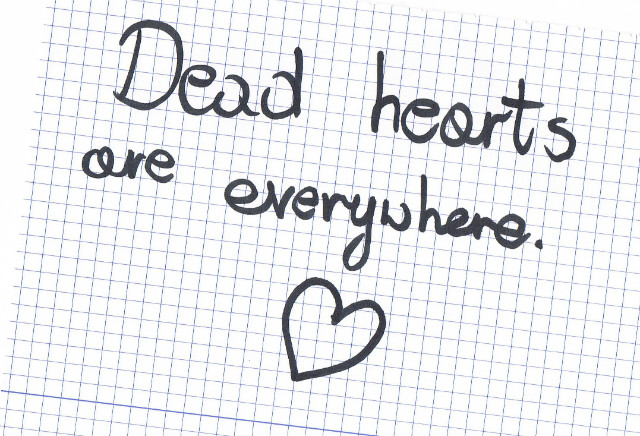 Dead hearts
are everywhere.